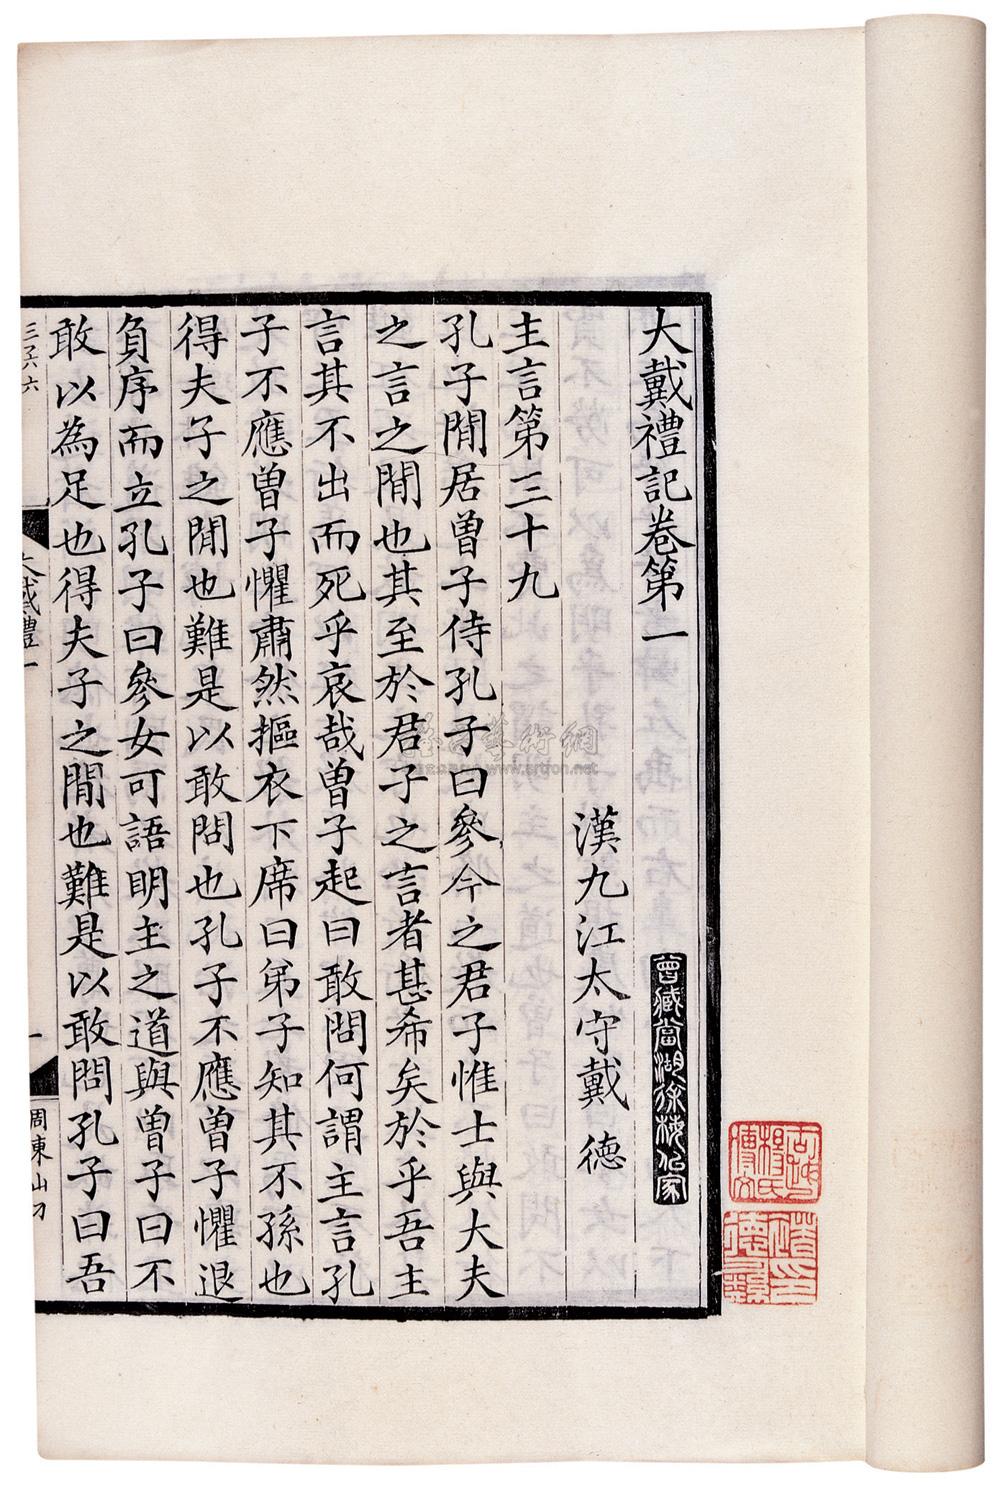 大戴禮記卷第一
漢九江太守戴 德
主言第三十九
孔子閒居曾子侍孔子曰參今之君子惟士與大夫
之言之閒也其至於君子之言者甚希矣於乎吾主
言其不出而死乎哀哉曾子起曰敢問何謂主言孔
子不應曾子懼肅然摳衣下席曰弟子知其不孫也
得夫子之閒也難是以敢問也孔子不應曾子懼退
負序而立孔子曰參女可語明主之道與曾子曰不
敢以為足也得夫子之閒也難是以敢問孔子曰吾
大戴禮一
一
周東山刀
曾藏當湖徐梅似家